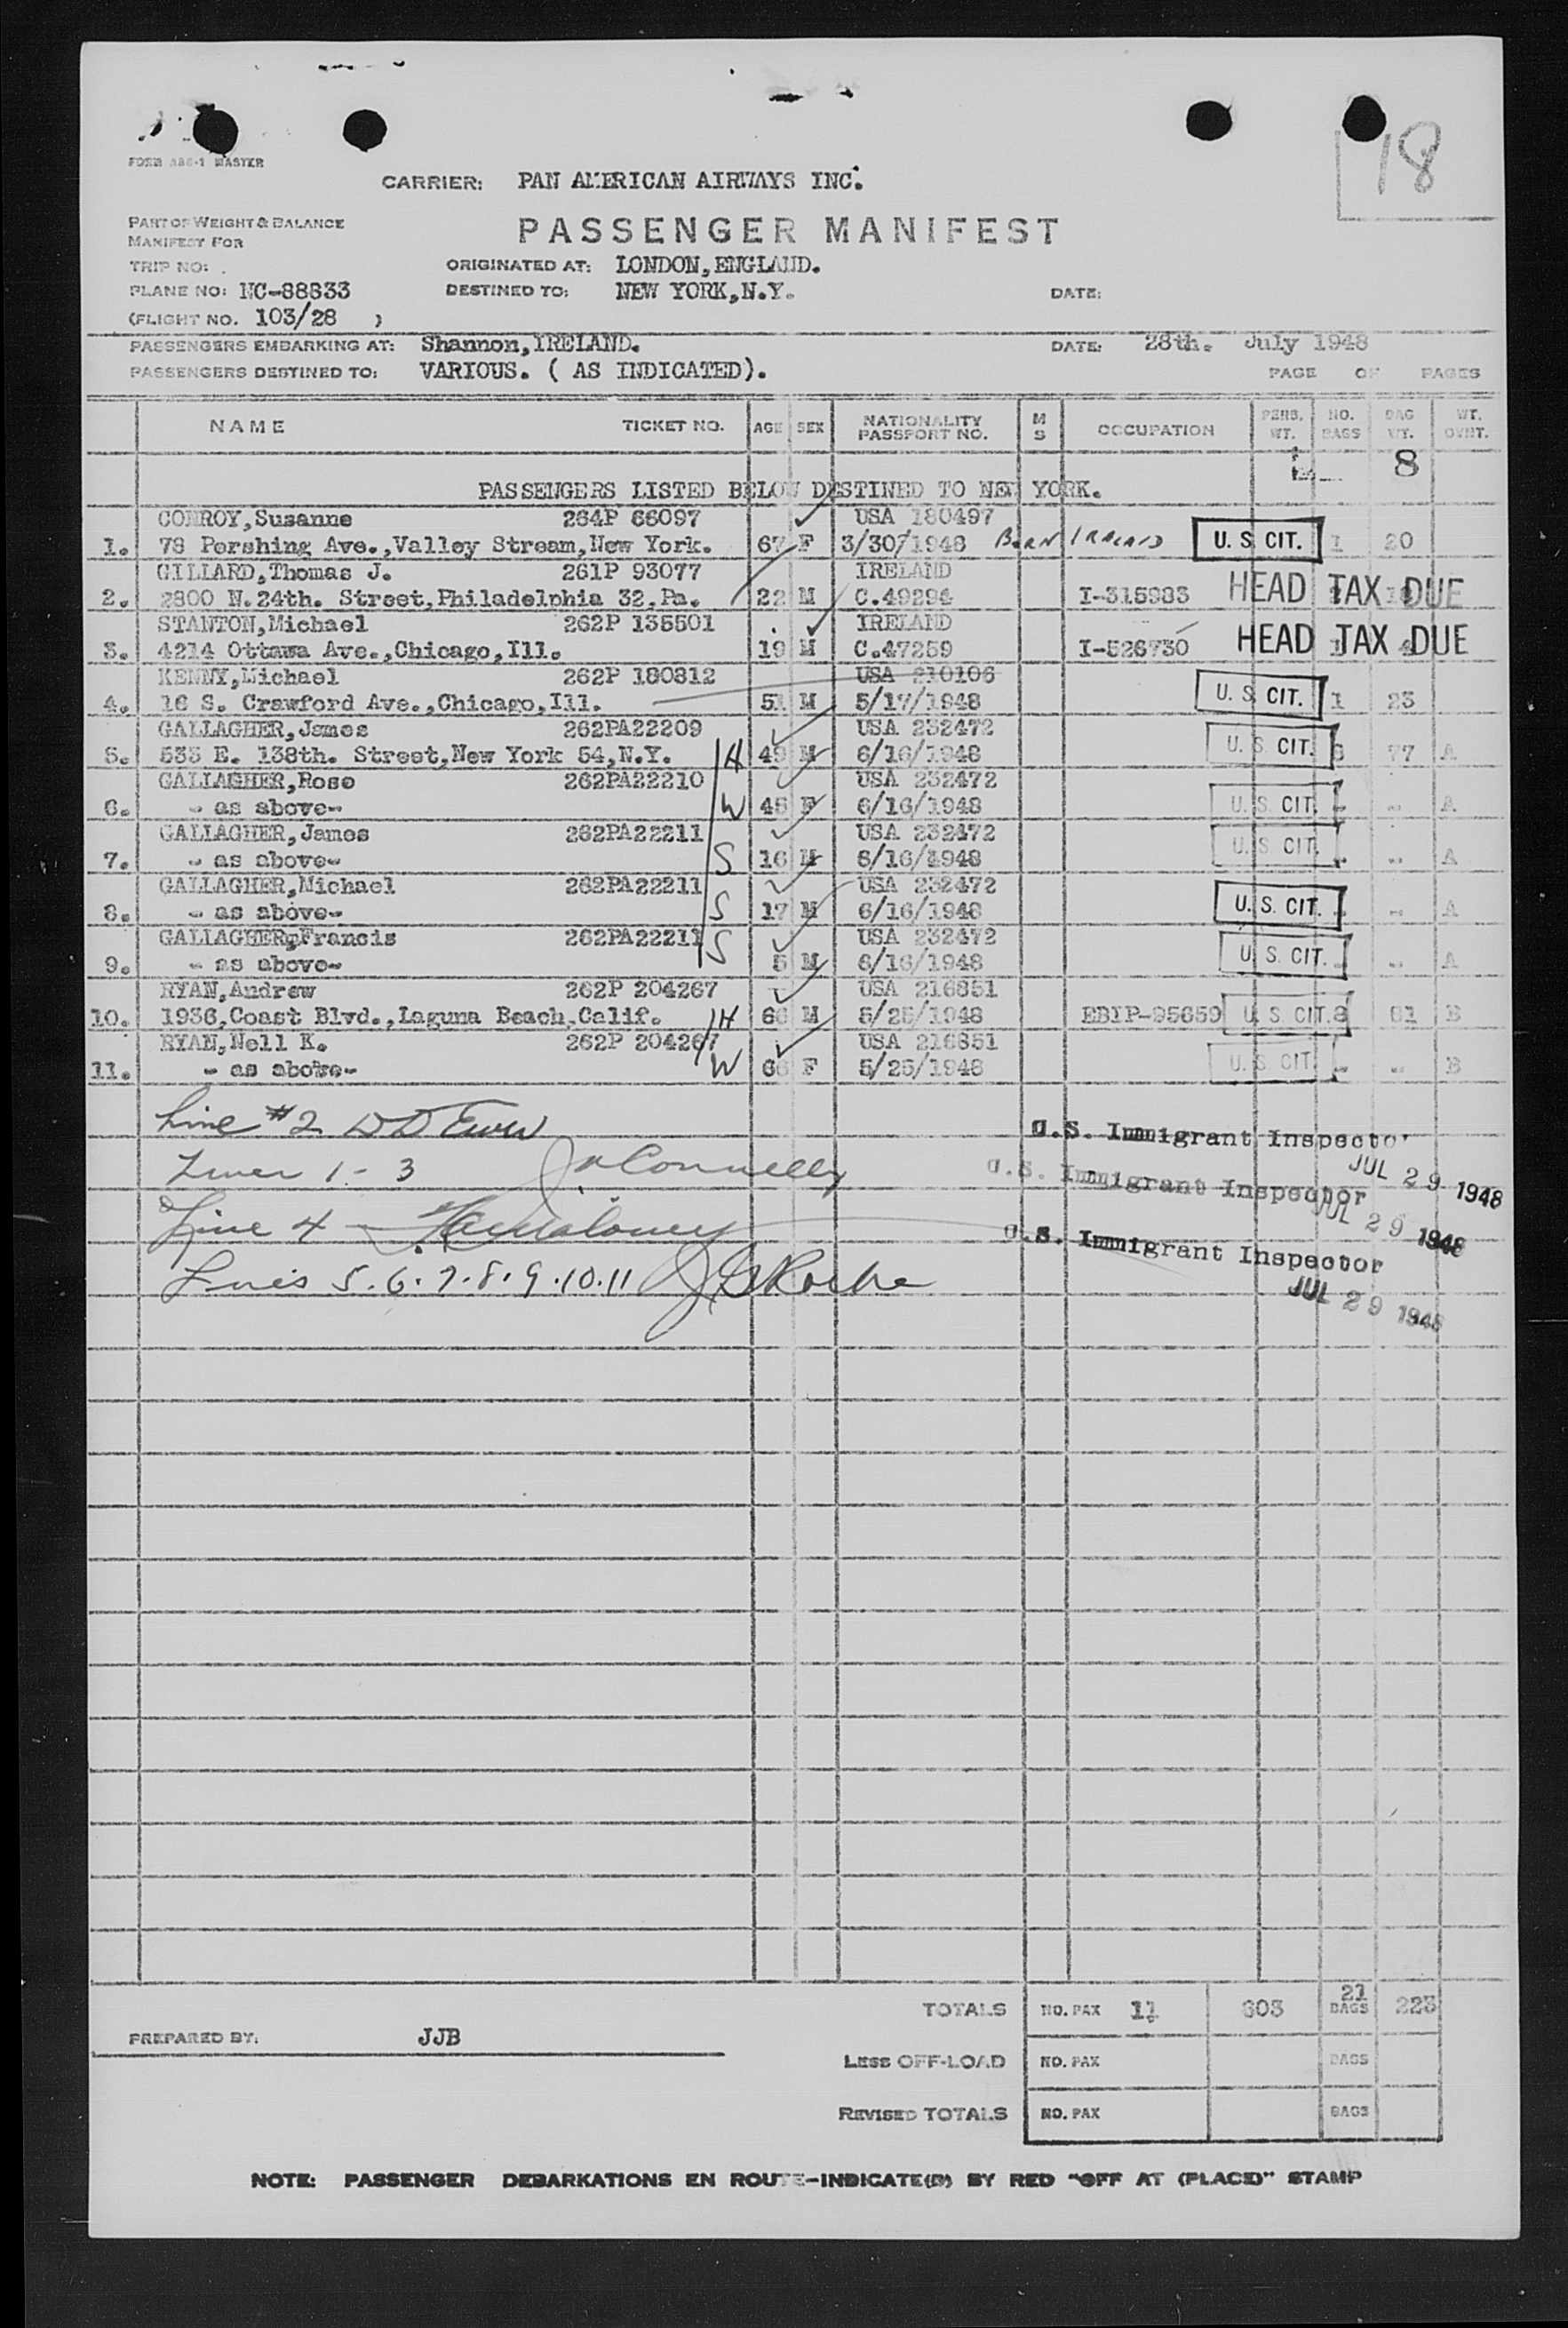 18
FORM MASTER
CARRIER: PAN AMERICAN AIRWAYS INC.
PART OF WEIGHT & BALANCE
MANIFEST FOR
PASSENGER MANIFEST
TRIP NO: ORIGINATED AT: LONDON, ENGLAND.
PLANE NO: NC-88833 DESTINED TO: NEW YORK, N.Y. DATE:
(FLIGHT NO. 103/28 )
PASSENGERS EMBARKING AT: Shannon, IRELAND. DATE: 28th. July 1948
PASSENGERS DESTINED TO: VARIOUS. ( AS INDICATED). PAGE OF PAGES
NAME TICKET NO. AGE SEX NATIONALITY PASSPORT NO. M S OCCUPATION PERS. WT. NO. BAGS BAG WT. WT. OVHT.
8
PASSENGERS LISTED BELOW DESTINED TO NEW YORK.
CONROY, Susanne 264P 66097 USA 180497
1. 78 Pershing Ave., Valley Stream, New York. 67 F 3/30/1948 BORN IRELAND U.S. CIT. 1 20
GILLARD, Thomas J. 261P 93077 IRELAND
2. 2800 N. 24th. Street, Philadelphia 32, Pa. 22 M C.49294 I-315983 HEAD TAX DUE
STANTON, Michael 262P 135501 IRELAND
3. 4214 Ottawa Ave., Chicago, Ill. 19 M C.47259 I-526730 HEAD TAX DUE
KENNY, Michael 262P 180812 USA 210106
4. 16 S. Crawford Ave., Chicago, Ill. 51 M 5/17/1948 U.S. CIT. 1 23
GALLAGHER, James 262PA22209 USA 232472
5. 533 E. 138th. Street, New York 54, N.Y. H 49 M 6/16/1948 U.S. CIT. 77 A
GALLAGHER, Rose 262PA22210 USA 232472
6. - as above- W 45 F 6/16/1948 U.S. CIT. - - A
GALLAGHER, James 262PA22211 USA 232472
7. - as above- S 16 M 6/16/1948 U.S. CIT. - - A
GALLAGHER, Michael 262PA22211 USA 232472
8. - as above- S 17 M 6/16/1948 U.S. CIT. - - A
GALLAGHER, Francis 262PA22211 USA 232472
9. - as above- S 5 M 6/16/1948 U.S. CIT. - - A
RYAN, Andrew 262P 204267 USA 216851
10. 1936, Coast Blvd., Laguna Beach, Calif. H 66 M 5/25/1948 EBIP-95659 U.S. CIT. 8 81 B
RYAN, Nell K. 262P 204267 USA 216851
11. - as above- W 66 F 5/25/1948 U.S. CIT. - - B
Line #2 U.S. Immigrant Inspector
JUL 29 1948
Lines 1 - 3 Connelly U.S. Immigrant Inspector
JUL 29 1948
Line 4 Maloney U.S. Immigrant Inspector
Lines 5. 6. 7. 8. 9. 10. 11 Roche
JUL 29 1948
TOTALS NO. PAX 11 603 21 BAGS 223
PREPARED BY: JJB
LESS OFF-LOAD NO. PAX BAGS
REVISED TOTALS NO. PAX BAGS
NOTE: PASSENGER DEBARKATIONS EN ROUTE-INDICATE(D) BY RED "OFF AT (PLACE)" STAMP